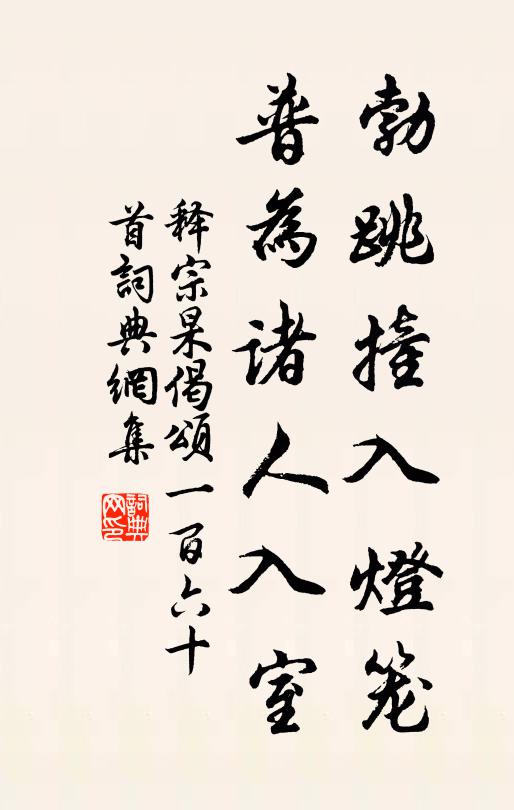 勃跳撞入燈笼
普為诸人入室
释宗杲偈頌一百六十
首詞典網集
詞典网印